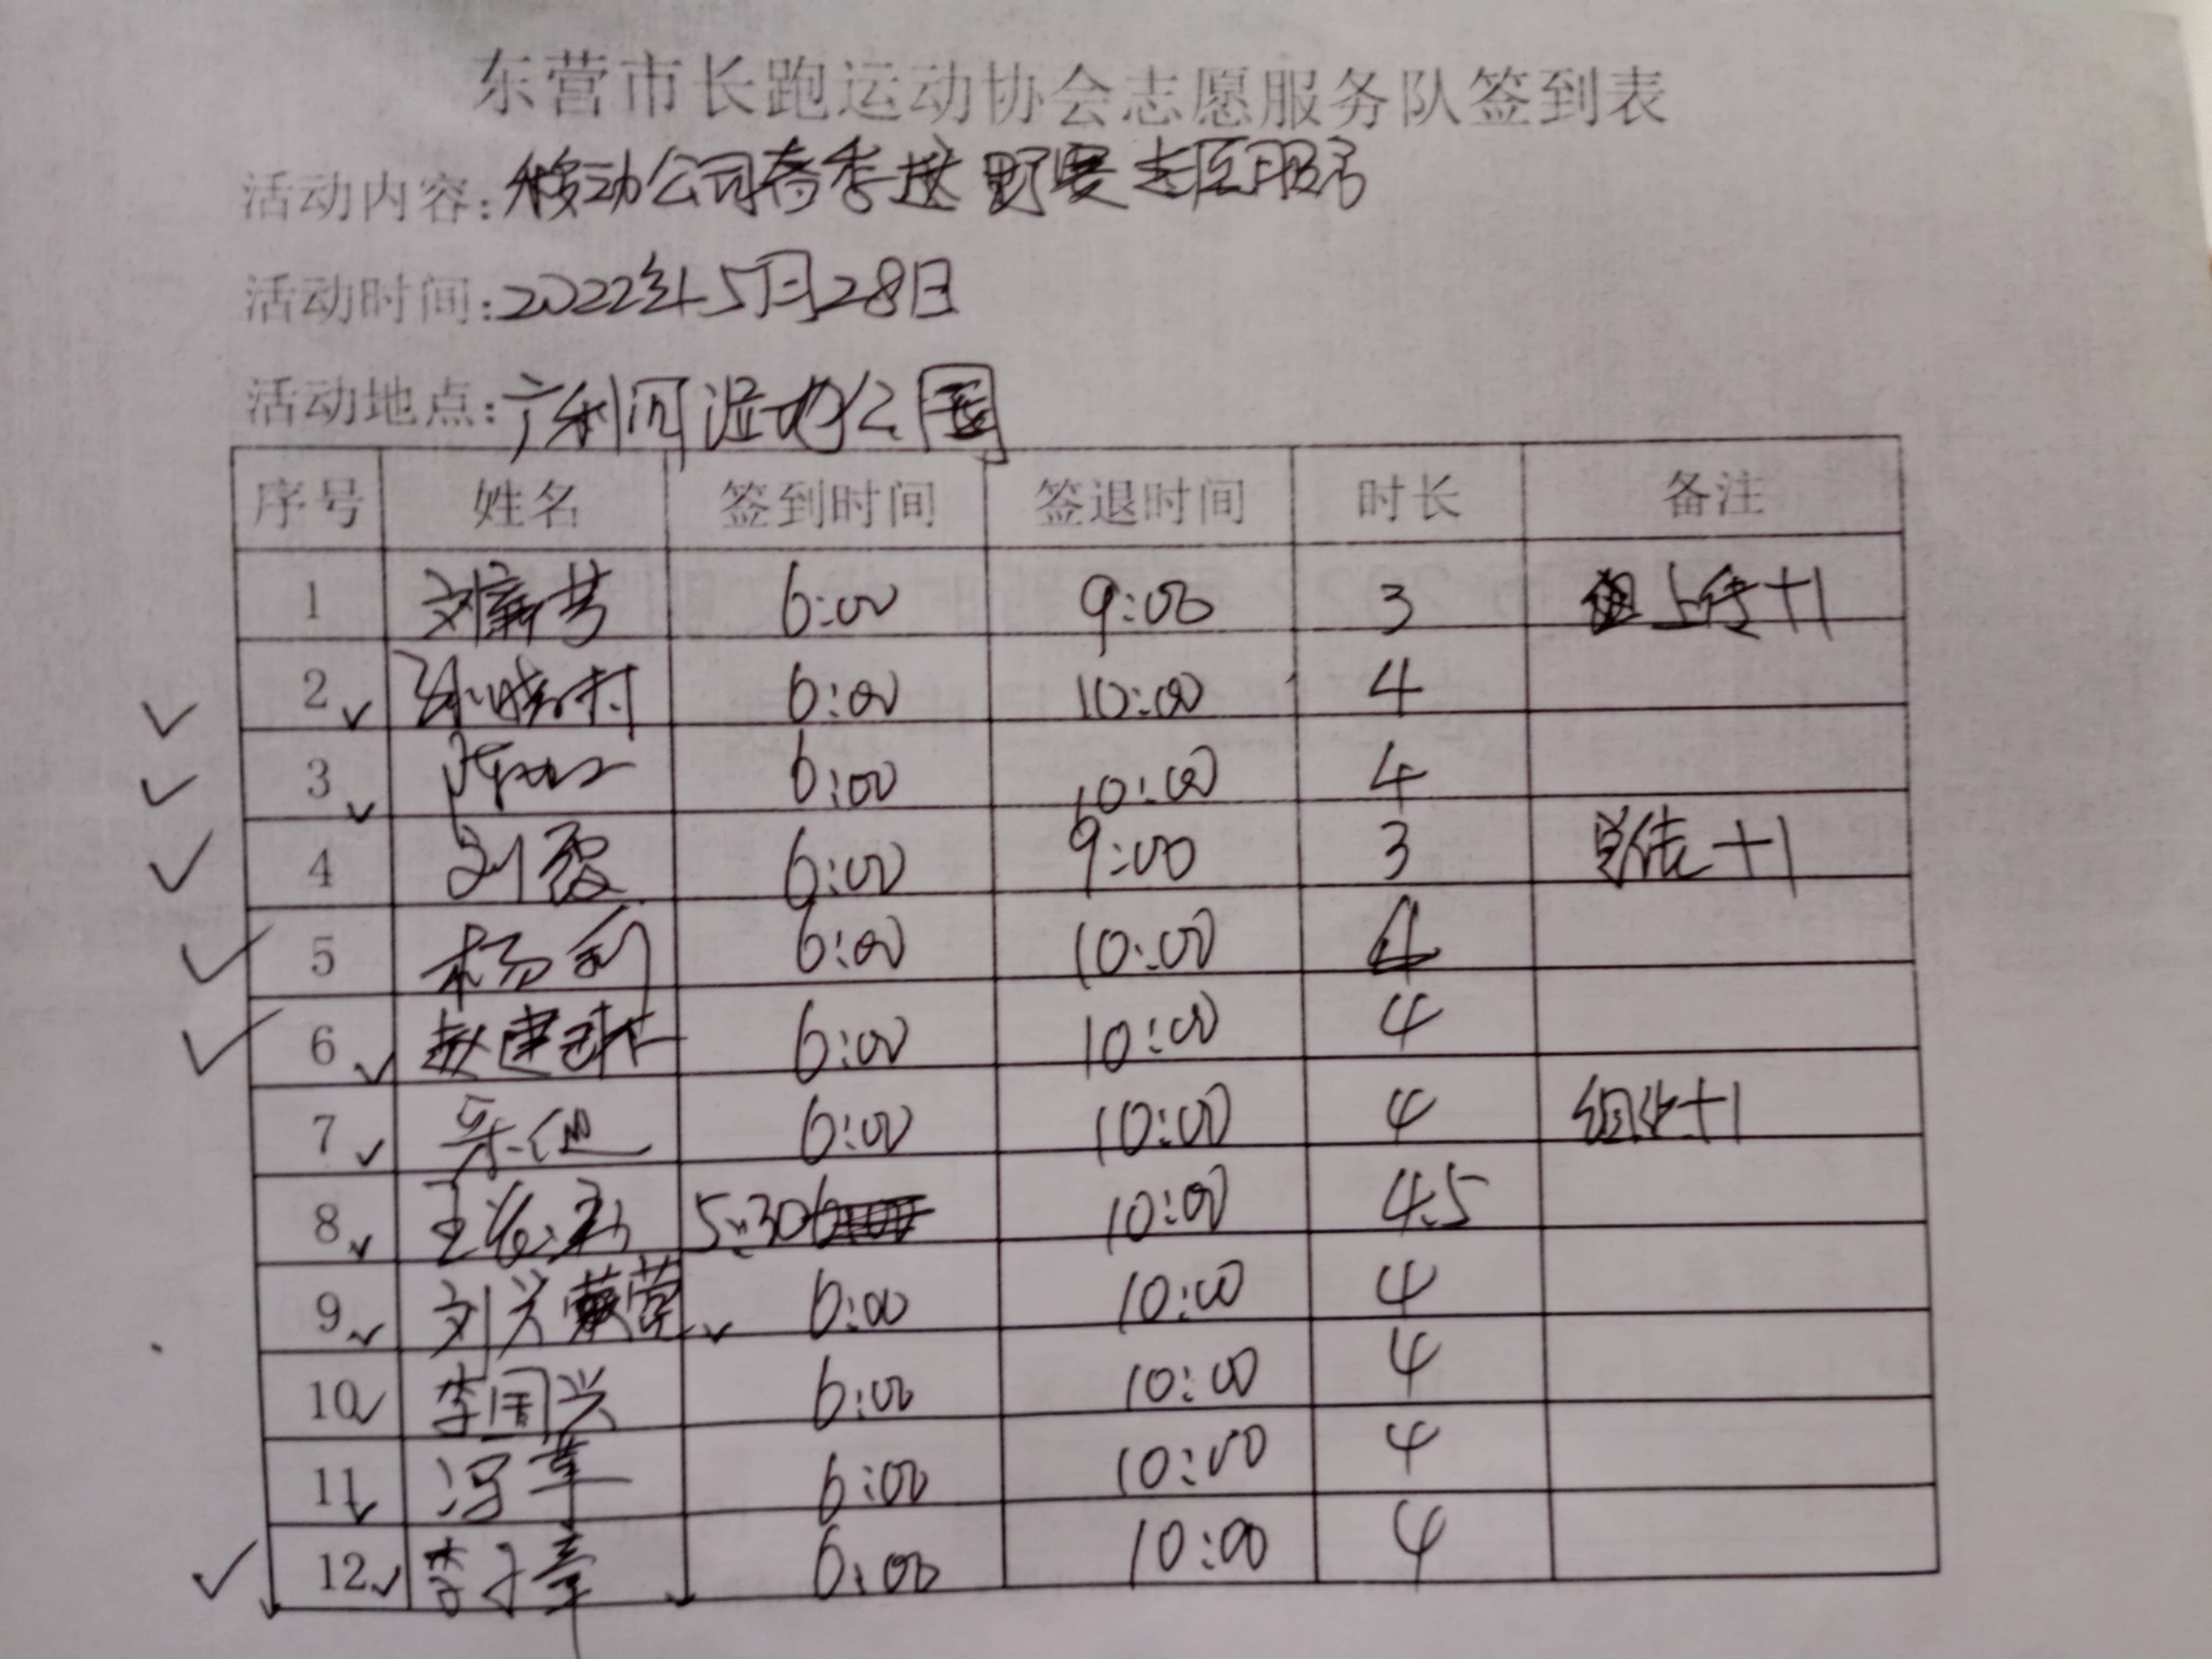 东营市长跑运动协会志愿服务队签到表
活动内容:移动公司春季越野赛志愿服务
活动时间:2022年5月28日
活动地点:广利河湿地公园
序号 姓名 签到时间 签退时间 时长 备注
1 刘新芳 6:00 9:00 3 上传+1
2 孙晓村 6:00 10:00 4
3 6:00 10:00 4
4 刘霞 6:00 9:00 3 总结+1
5 杨利 6:00 10:00 4
6 赵建 6:00 10:00 4
7 6:00 10:00 4 组织+1
8 王 5:30 10:00 4.5
9 刘兴荣 6:00 10:00 4
10 李国兴 6:00 10:00 4
11 冯革 6:00 10:00 4
12 李子章 6:00 10:00 4